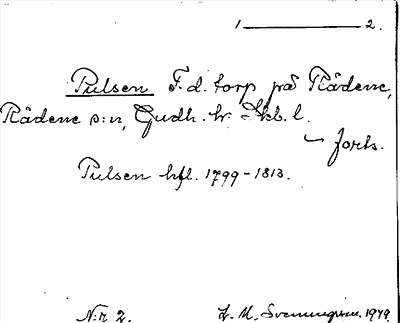 1 ——— 2.
Pulsen F.d. torp på Rådene,
Rådene s:n, Gudh. hr Skb. l.
— forts.
Pulsen hfl. 1799-1813.
N:r 2. L. M. Svenungsson. 1979